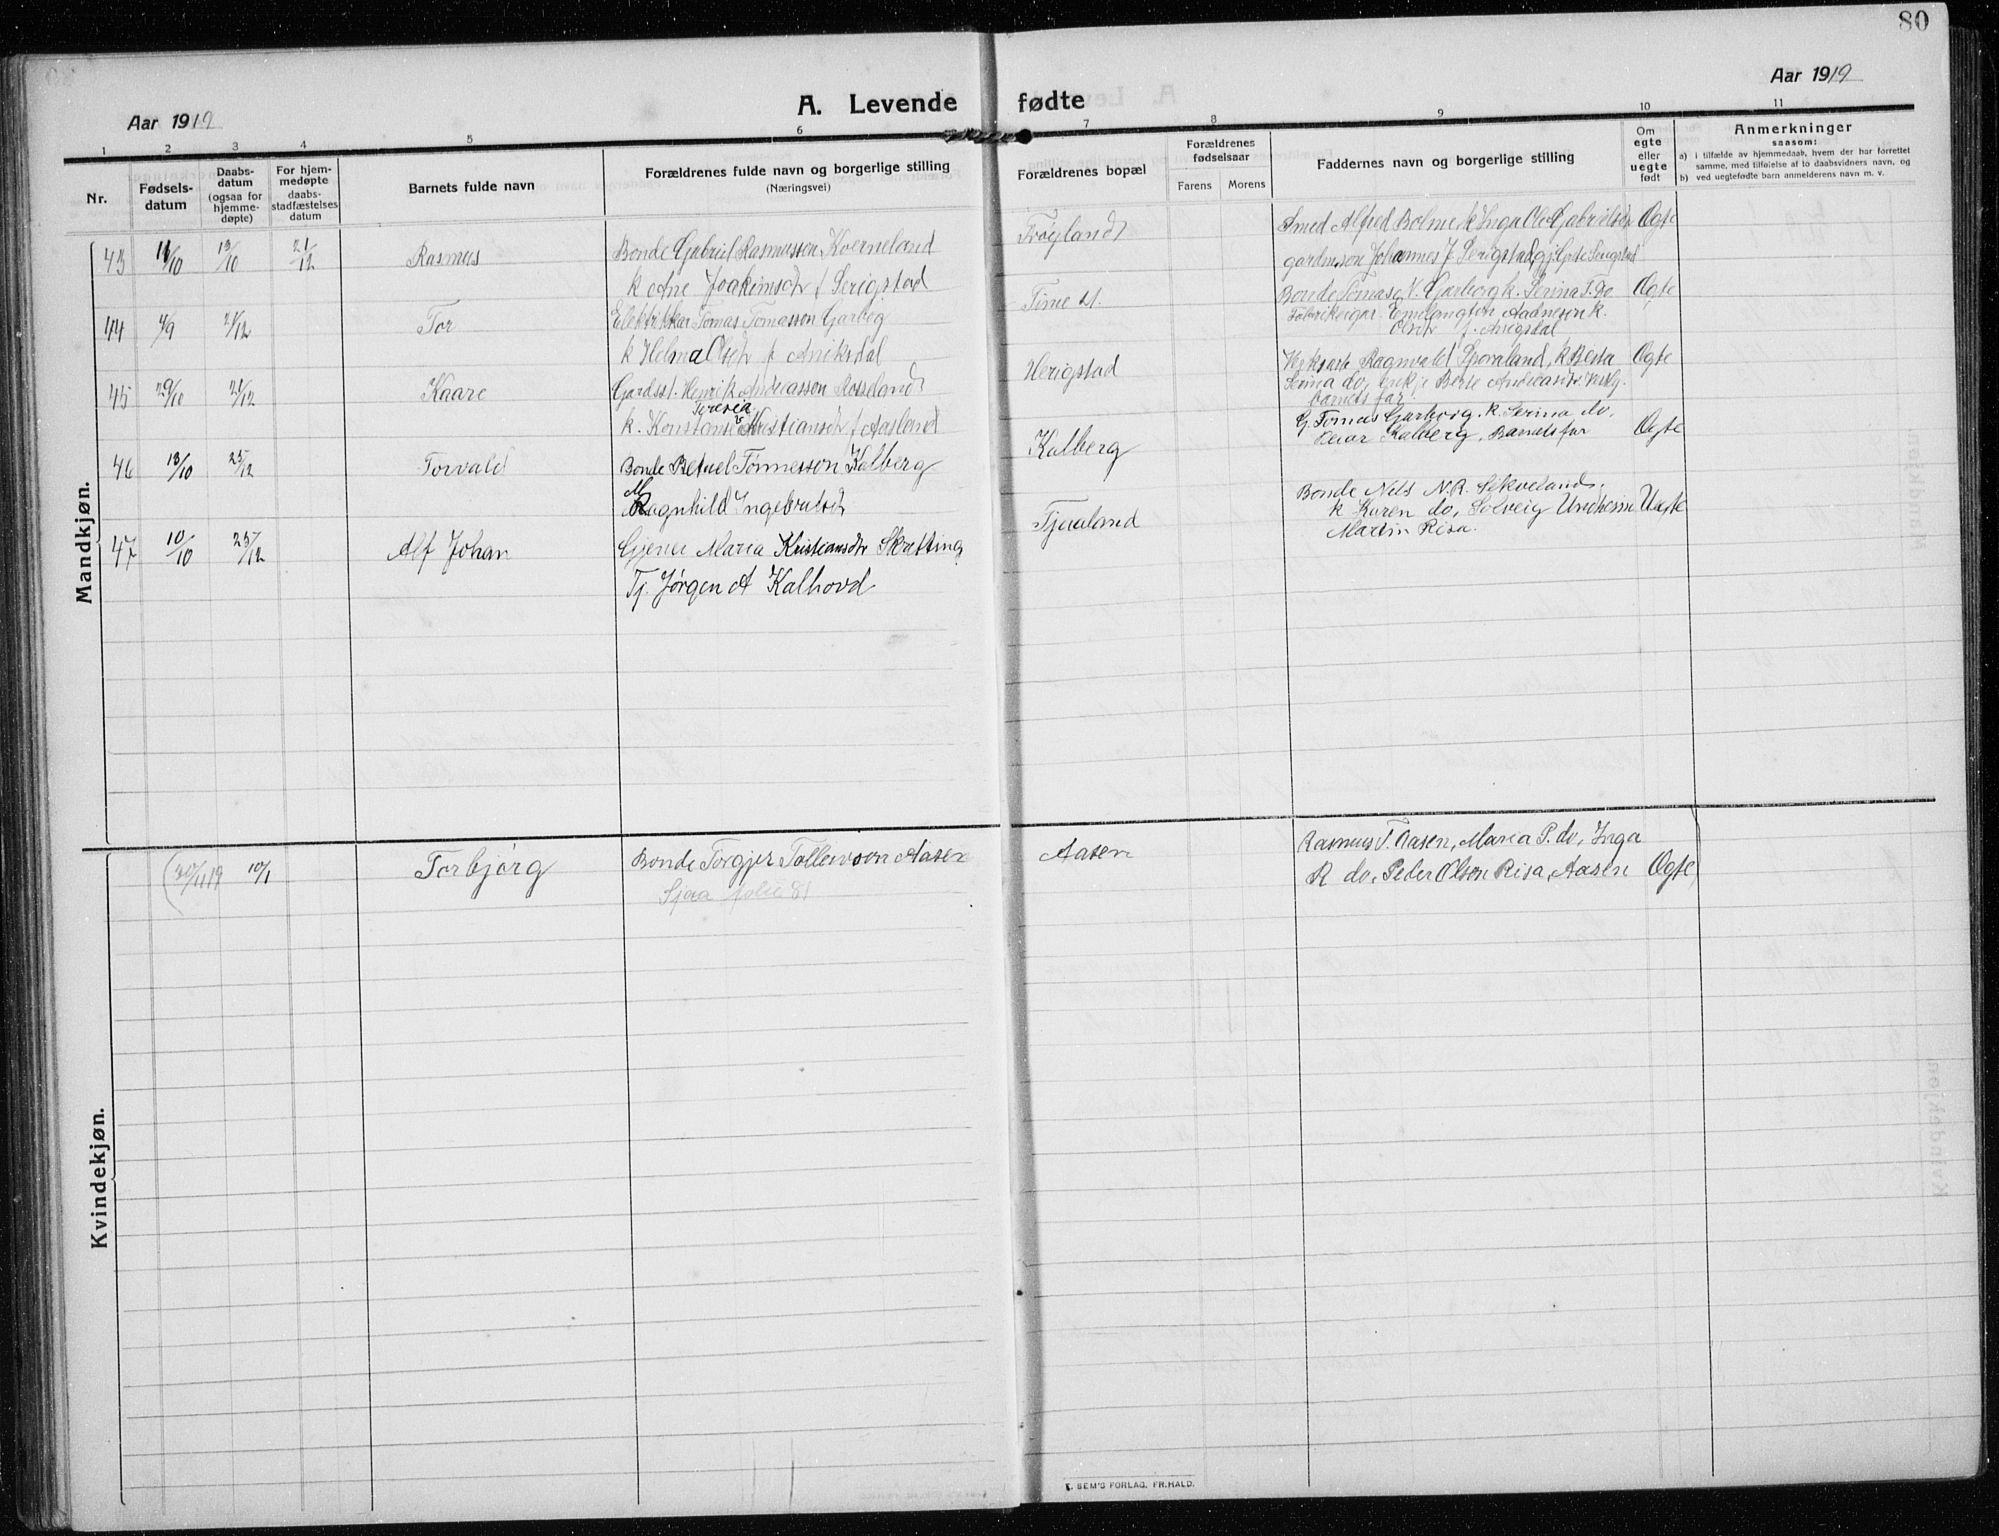 80
Aar 1919
A. Levende fødte
Aar 1919
1 2 3 4 5 6 7 8 9 10 11
Nr.
Fødsels-
datum
Daabs-
datum
(ogsaa for
hjemme-
døpte)
For hjem-
medøpte
daabs-
stadfæstelses
datum
Barnets fulde navn
Forældrenes fulde navn og borgerlige stilling
(Næringsvei)
Forældrenes bopæl
Forældrenes
fødselsaar
Farens Morens
Faddernes navn og borgerlige stilling
Om
egte
eller
uegte
født
Anmerkninger
saasom:
a) i tilfælde av hjemmedaab, hvem der har forrettet
samme, med tilføielse af to daabsvidners navn, og
b) ved uegtefødte barn anmelderens navn m. v.
Mandkjøn.
43 11/10 13/10 21/12 Rasmus Bonde Gabriel Rasmussen Kverneland
k Ane Joakimsdtr f Serigstad
Frøyland
Smed Alfred Bolme k Inga Gabrielsen
gardmson Johannes J Serigstad gj Serigstad
Ogte
44 4/9 21/12 Tor Elektriker Tomas Tomasson Garborg
k Helma Olsdtr f Aniksdal
Time
Bonde Tomas Garborg k. Serina T. do
Fabrikeigar Aadneson k.
Ogte
45 29/10 21/12 Kaare Gardsst. Henrik Andreasson Rosseland
Teresia
k. Konstanse Kristiansdtr f Aasland
Herigstad
Ragnvald k Berta
Serina do, Berte Andreasdtr
barnets far
Ogte
46 13/10 25/12 Torvald Bonde Betuel Tønnesson Kalberg
M
Ragnhild Ingebretsdtr
Kalberg
G. Tomas Garborg. k. Serina do.
Kalberg, Barnets far
Ogte
47 10/10 25/12 Alf Johan Gjente Maria Kristiansdtr Skretting
Tj. Jørgen A Kalhovd
Tjaaland
Bonde Nils N.R. Sikveland,
k Karen do, Solveig Undheim
Martin Risa.
Uegte
Kvindekjøn.
(30/11 19 10/1 Torbjørg Bonde Torgjer Tollevson Aasen
Sjaa folie 81
Aasen
Rasmus T. Aasen, Maria P. do, Inga
R do, Peder Olson Risa, Aasen Ogte)
E. SEM'S FORLAG, FR.HALD.